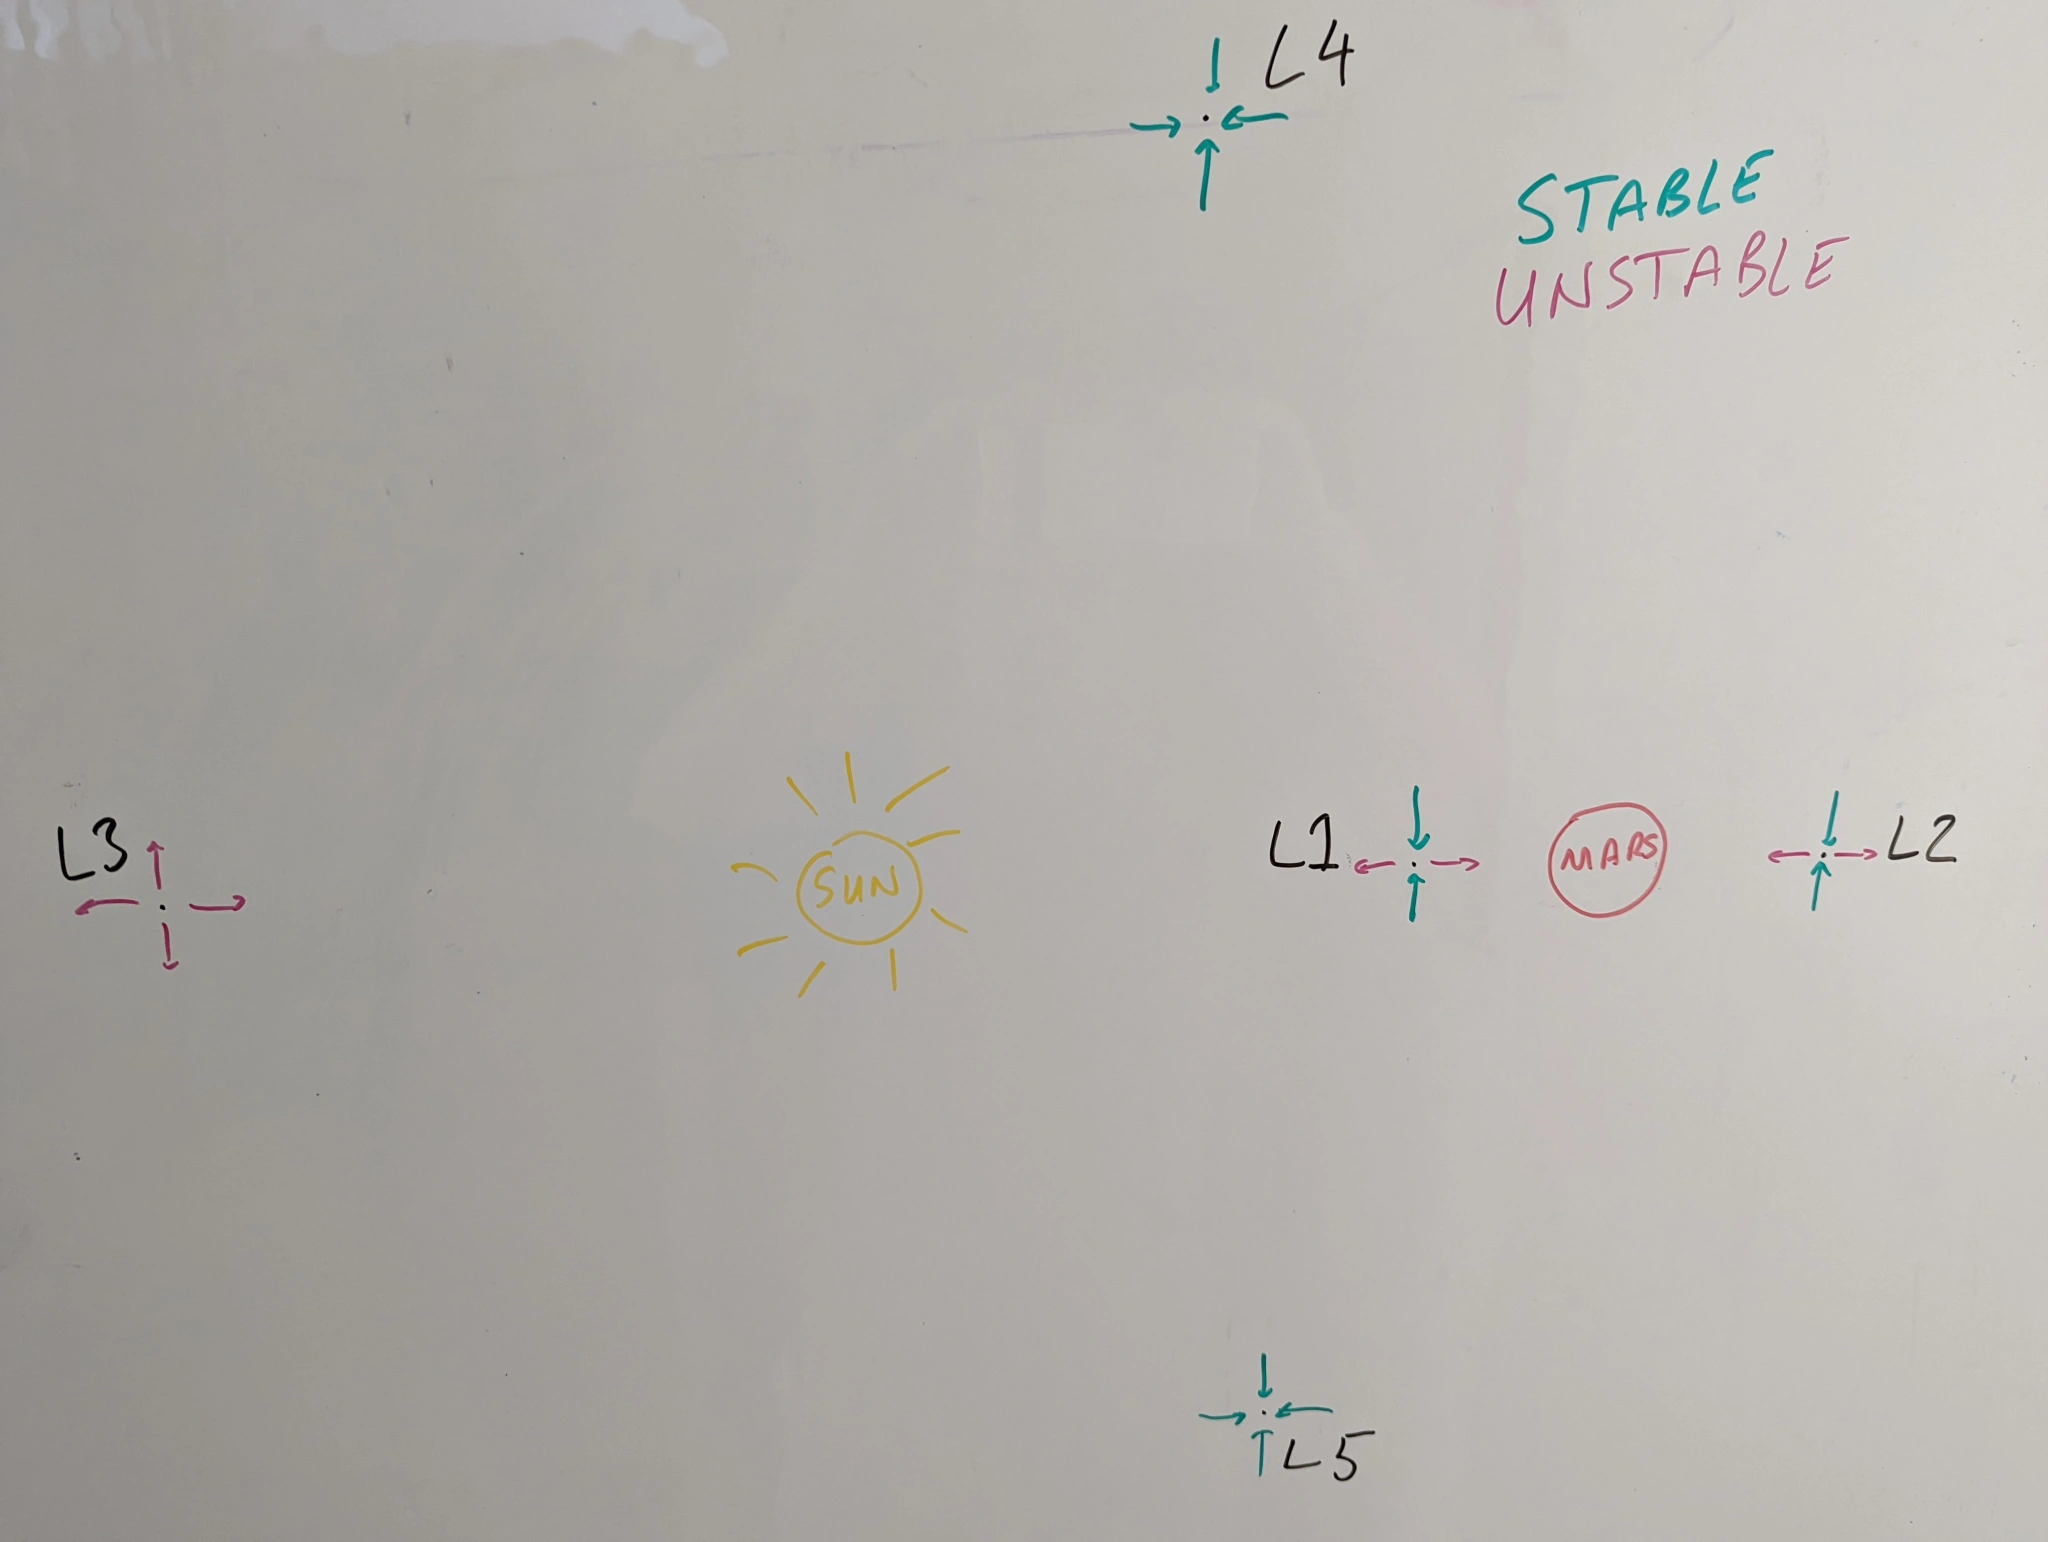 L4
STABLE
UNSTABLE
L3
SUN
L1
MARS
L2
L5